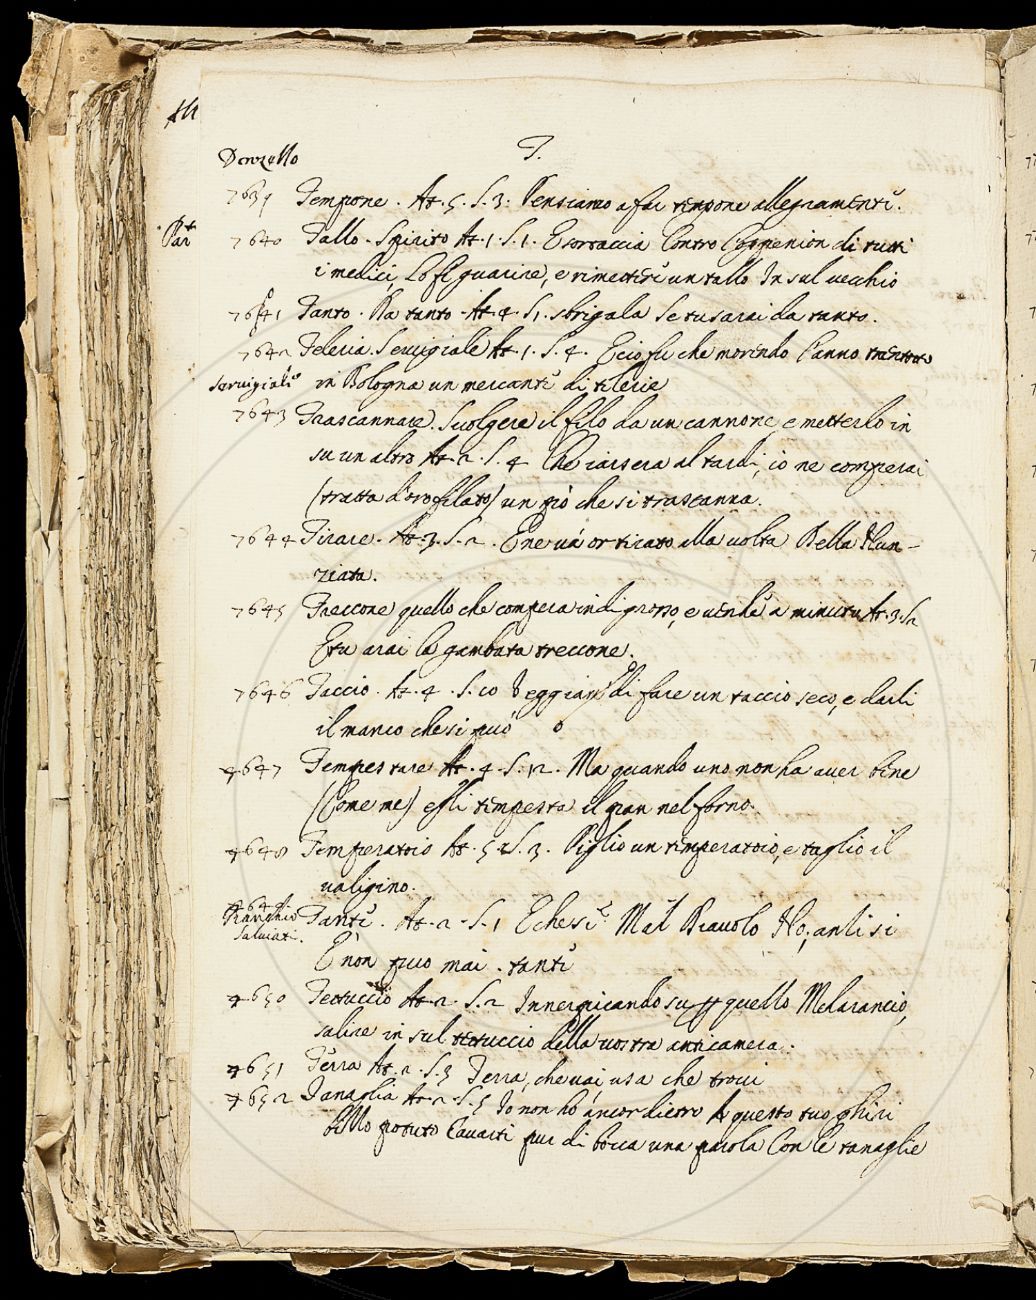 T.
Donzello
7639 Tempone. At. 5. S. 3. Pensiamo a far tempone allegramente.
7640 Tallo. Spirito At. 1. S. 1. E corraccia Contro l'oppenion di tutti
i medici, lo fe guarire, e rimettere un tallo In sul vecchio
7641 Tanto. Da tanto. At. 4. S. 1. strigala Se tu sarai da tanto.
7642 Teleria. Servigiale At. 1. S. 4. E cio fu che morendo l'anno
Servigiale in Bologna un mercante di telerie
7643 Trascannare. Svolgere il filo da un cannone, e metterlo in
su un altro At. 2. S. 4 Che iarsera al tardi, io ne comperai
(tratta d'oro filato) un pò che si trascanna.
7644 Tirare. At. 3. S. 2. E ne và or tirato alla volta Della Nun-
ziata.
7645 Treccone quello che compera indigrosso, e vende a minuto At. 3. S. 2
E tu arai la gambata treccone.
7646 Taccio. At. 4. S. 10 Veggiam di fare un taccio seco, e darli
il manco che si può
4647 Tempestare At. 4. S. 12. Ma quando uno non ha aver bene
(Come me) egli tempesta il gran nel forno.
4648 Temperatoio At. 5. S. 3. Piglio un temperatoio, e taglio il
valigino.
4649 Tante. At. 2. S. 1 E che si? Mal Diavolo No; anli si
Granchio
Salviati.
E non può mai. tante
4650 Tettuccio At. 2. S. 2 Innerpicando su quello Melarancio,
salire in sul tettuccio della vostra anticamera.
4651 Terra At. 2. S. 3 Terra, che vai, usa che trovi
4652 Tanaglia At. 2. S. 5 Io non ho ancor dietro A questo tuo ghiri
potuto Cavarti pur di bocca una parola Con le tanaglie